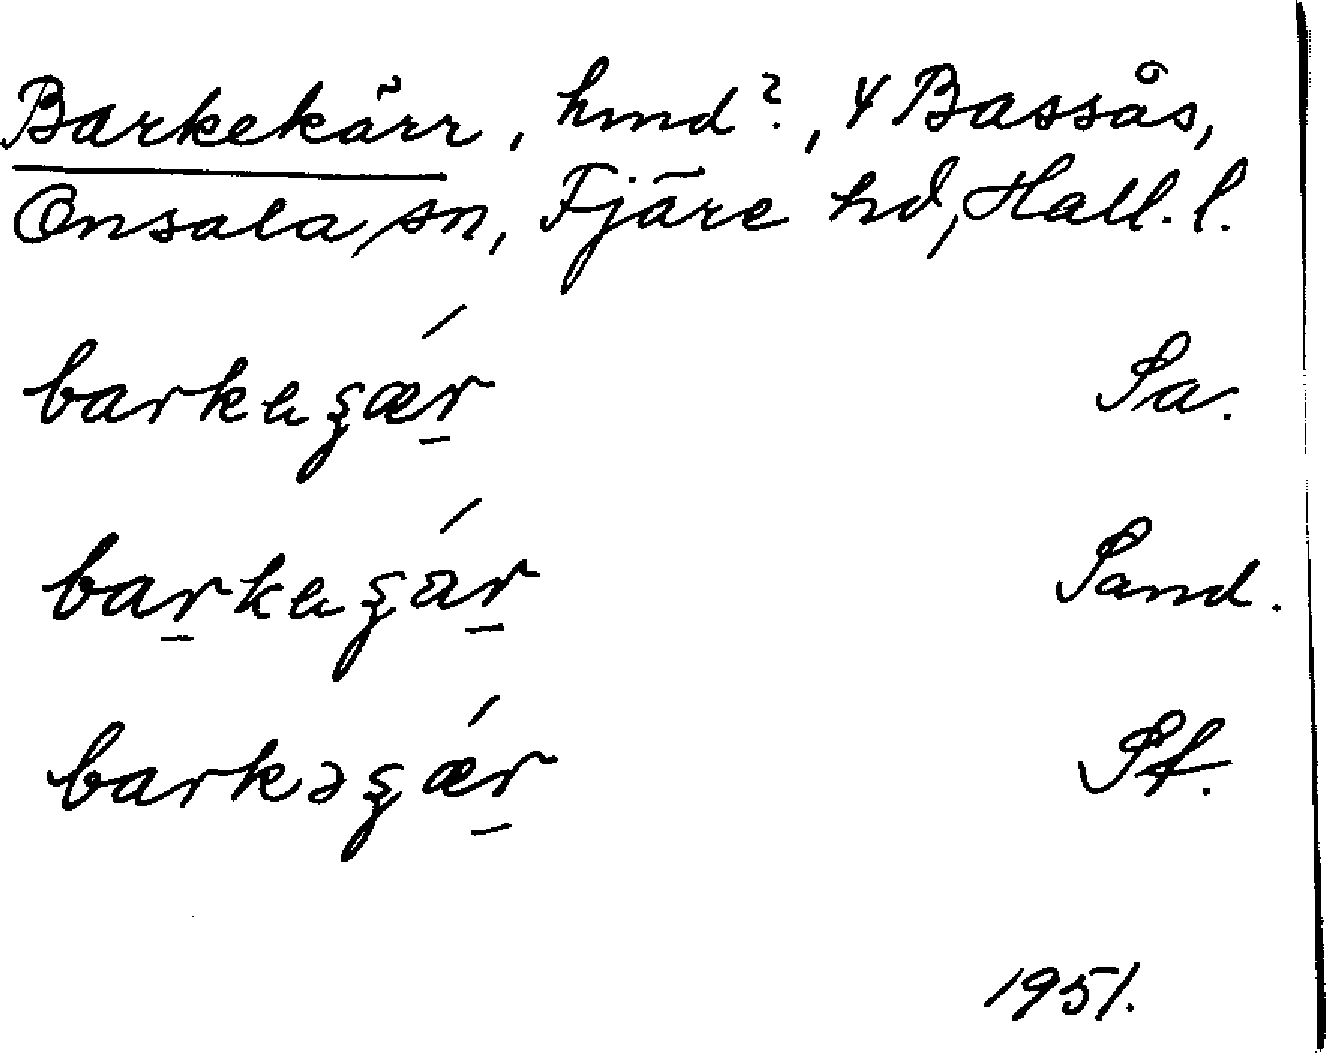 Barkekärr, hmd?, 4 Bassås,
Onsala sn, Fjäre hd, Hall. l.
barkaʂǽr Sa.
barkaʂár Sand.
barkəʂǽr St.
1951.